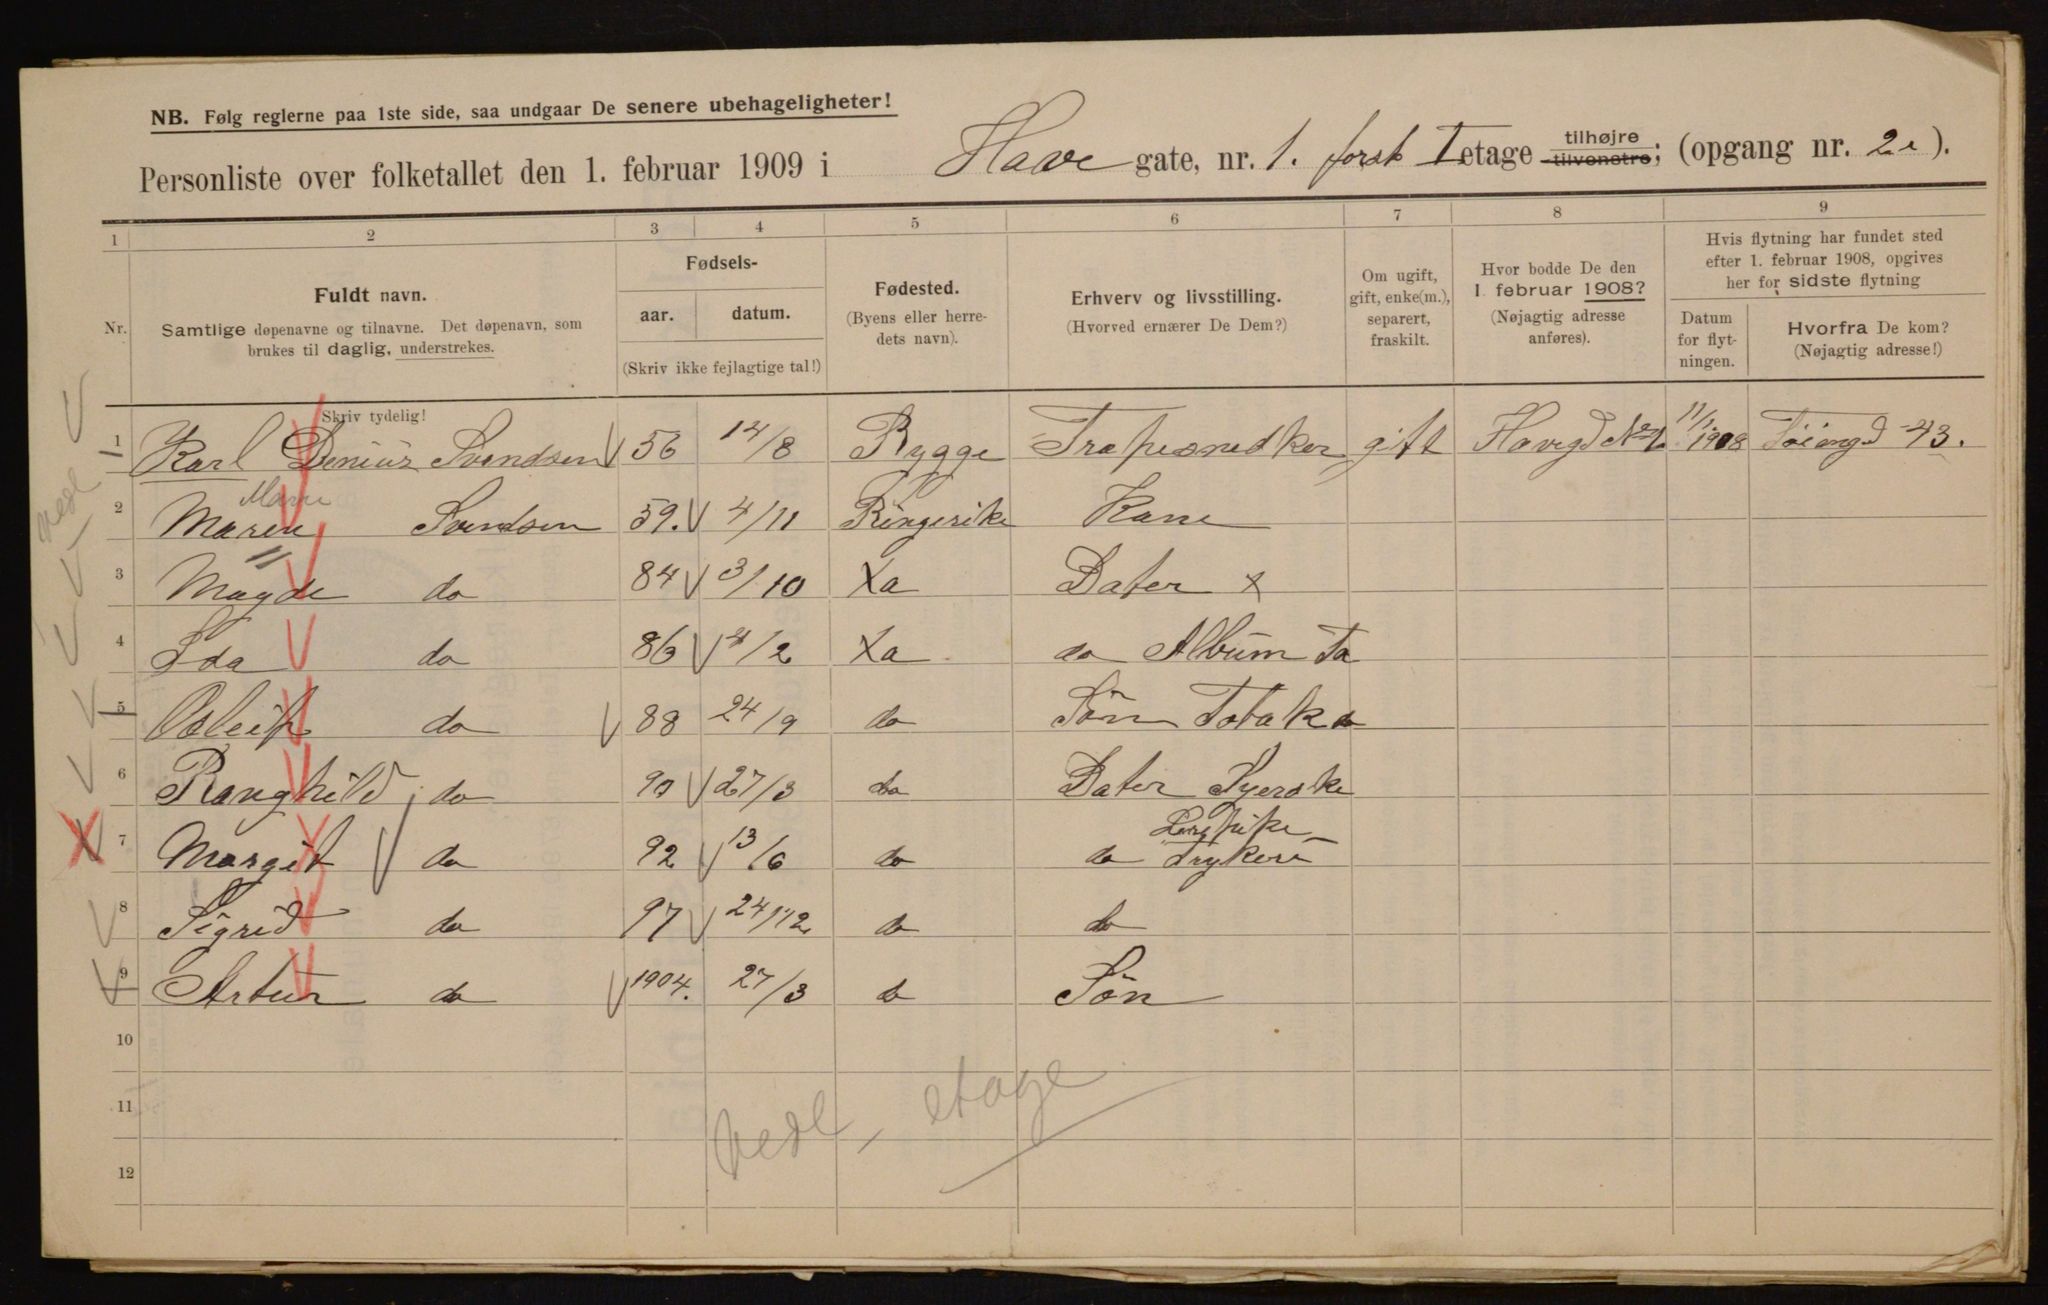 NB. Følg reglerne paa 1ste side, saa undgaar De senere ubehageligheter!
Personliste over folketallet den 1. februar 1909 i Have gate, nr. 1. forst I etage tilhøjre tilvenstre; (opgang nr. 2 ).
1 2 3 4 5 6 7 8 9
Nr.
Fuldt navn.
Samtlige døpenavne og tilnavne. Det døpenavn, som
brukes til daglig, understrekes.
Fødsels-
aar. datum.
(Skriv ikke fejlagtige tal!)
Fødested.
(Byens eller herre-
dets navn).
Erhverv og livsstilling.
(Hvorved ernærer De Dem?)
Om ugift,
gift, enke(m.),
separert,
fraskilt.
Hvor bodde De den
1. februar 1908?
(Nøjagtig adresse
anføres).
Hvis flytning har fundet sted
efter 1. februar 1908, opgives
her for sidste flytning
Datum
for flyt-
ningen.
Hvorfra De kom?
(Nøjagtig adresse!)
Skriv tydelig!
1 Karl Svendsen 56 14/8 Rygge gift 1908 43.
2 Maren Svendsen 59. 4/11 Ringerike Kone
3 Magda do 84 3/10 Dater x
4 Ida do 86 4/2 do Album
5 do 88 24/9 do Sön
6 Ranghild do 90 27/3 do Dater Syerske
7 Margit do 92 13/6 do do
8 Sigrid do 97 24/12 do do
9 Artur do 1904. 27/3 do Sön
10
11
12
vedl, etage